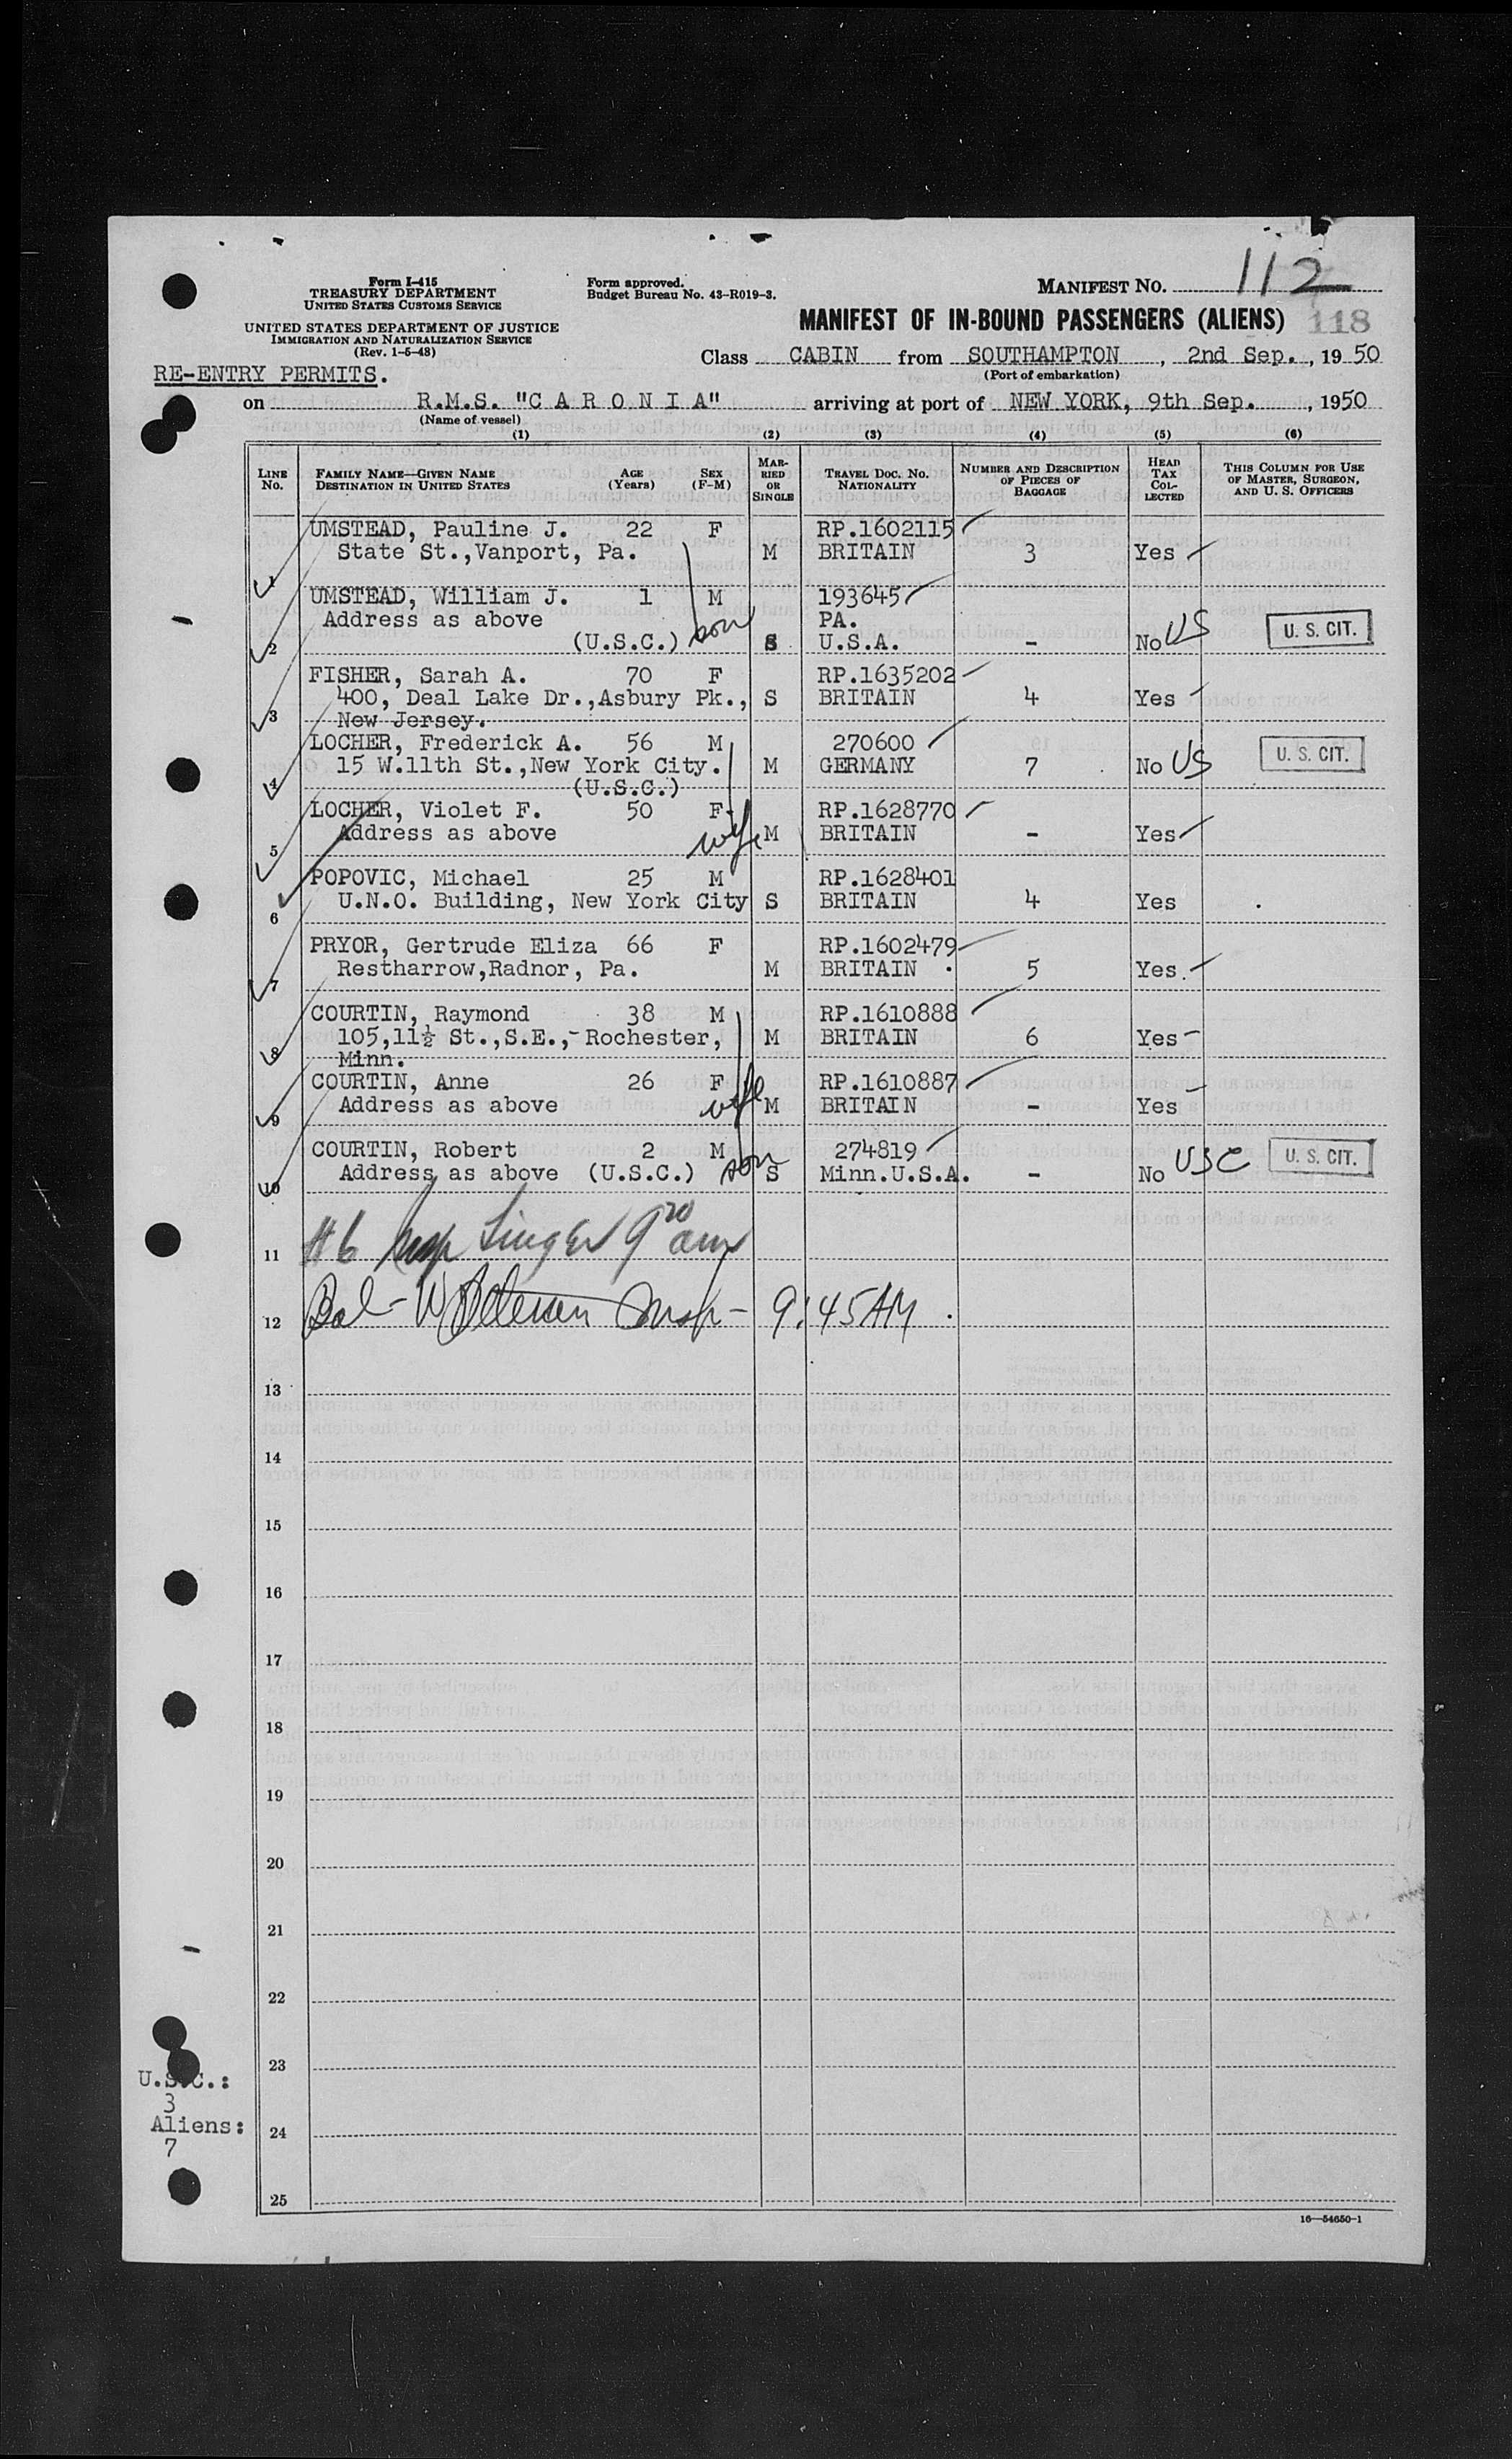 Form I-415
TREASURY DEPARTMENT
UNITED STATES CUSTOMS SERVICE
UNITED STATES DEPARTMENT OF JUSTICE
IMMIGRATION AND NATURALIZATION SERVICE
(Rev. 1-5-48)
Form approved.
Budget Bureau No. 43-R019-3.
MANIFEST NO. 112
MANIFEST OF IN-BOUND PASSENGERS (ALIENS) 118
Class CABIN from SOUTHAMPTON, 2nd Sep., 1950
(Port of embarkation)
RE-ENTRY PERMITS.
on R.M.S. "C A R O N I A" arriving at port of NEW YORK, 9th Sep., 1950
(Name of vessel)
(1) (2) (3) (4) (5) (6)
LINE No. FAMILY NAME—GIVEN NAME DESTINATION IN UNITED STATES AGE (Years) SEX (F-M) MARRIED OR SINGLE TRAVEL DOC. NO. NATIONALITY NUMBER AND DESCRIPTION OF PIECES OF BAGGAGE HEAD TAX COLLECTED THIS COLUMN FOR USE OF MASTER, SURGEON, AND U. S. OFFICERS
UMSTEAD, Pauline J. 22 F RP.1602115
State St.,Vanport, Pa. M BRITAIN 3 Yes
1
UMSTEAD, William J. 1 M 193645
Address as above son PA. US U. S. CIT.
2 (U.S.C.) S U.S.A. - No
FISHER, Sarah A. 70 F RP.1635202
400, Deal Lake Dr.,Asbury Pk., S BRITAIN 4 Yes
3 New Jersey.
LOCHER, Frederick A. 56 M 270600
15 W.11th St.,New York City. M GERMANY 7 No US U. S. CIT.
4 (U.S.C.)
LOCHER, Violet F. 50 F RP.1628770
Address as above wife M BRITAIN - Yes
5
POPOVIC, Michael 25 M RP.1628401
6 U.N.O. Building, New York City S BRITAIN 4 Yes
PRYOR, Gertrude Eliza 66 F RP.1602479
Restharrow,Radnor, Pa. M BRITAIN 5 Yes.
7
COURTIN, Raymond 38 M RP.1610888
105,11½ St.,S.E.,-Rochester, M BRITAIN 6 Yes
8 Minn.
COURTIN, Anne 26 F RP.1610887
Address as above wife M BRITAIN - Yes
9
COURTIN, Robert 2 M 274819 USC U. S. CIT.
Address as above (U.S.C.) son S Minn.U.S.A. - No
10
11 #6 Insp Singer 9 20 am
12 Bal- Insp- 9:45AM
13
14
15
16
17
18
19
20
21
22
23
24
25
U.S.C.:
3
Aliens:
7
16—54650-1